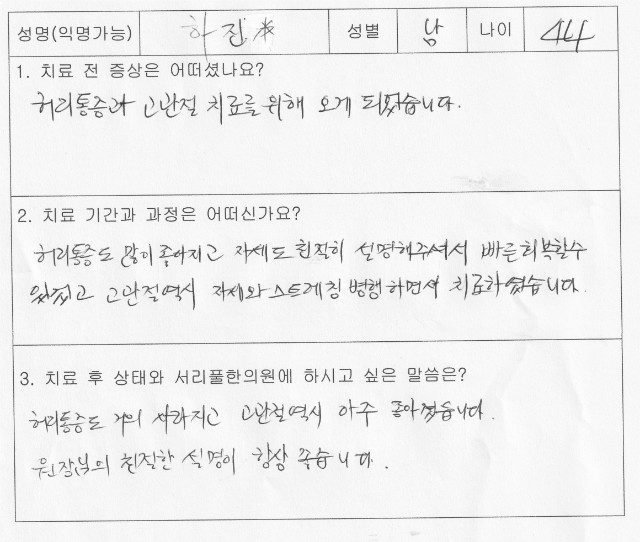 성명(익명가능) 하진* 성별 남 나이 44
1. 치료 전 증상은 어떠셨나요?
허리통증과 고관절 치료를 위해 오게 되었습니다.
2. 치료 기간과 과정은 어떠신가요?
허리통증도 많이 좋아지고 자세도 친절히 설명해주셔서 빠른회복할수
있었고 고관절역시 자세와 스트레칭 병행하면서 치료하였습니다.
3. 치료 후 상태와 서리풀한의원에 하시고 싶은 말씀은?
허리통증도 거의 사라지고 고관절역시 아주 좋아졌습니다.
원장님의 친절한 설명이 항상 좋습니다.